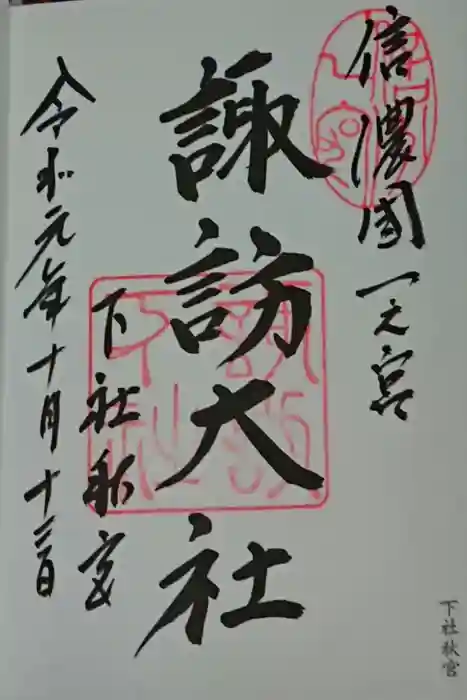 信濃國一之宮
諏訪大社
下社秋宮
令和元年十月十三日
下社秋宮